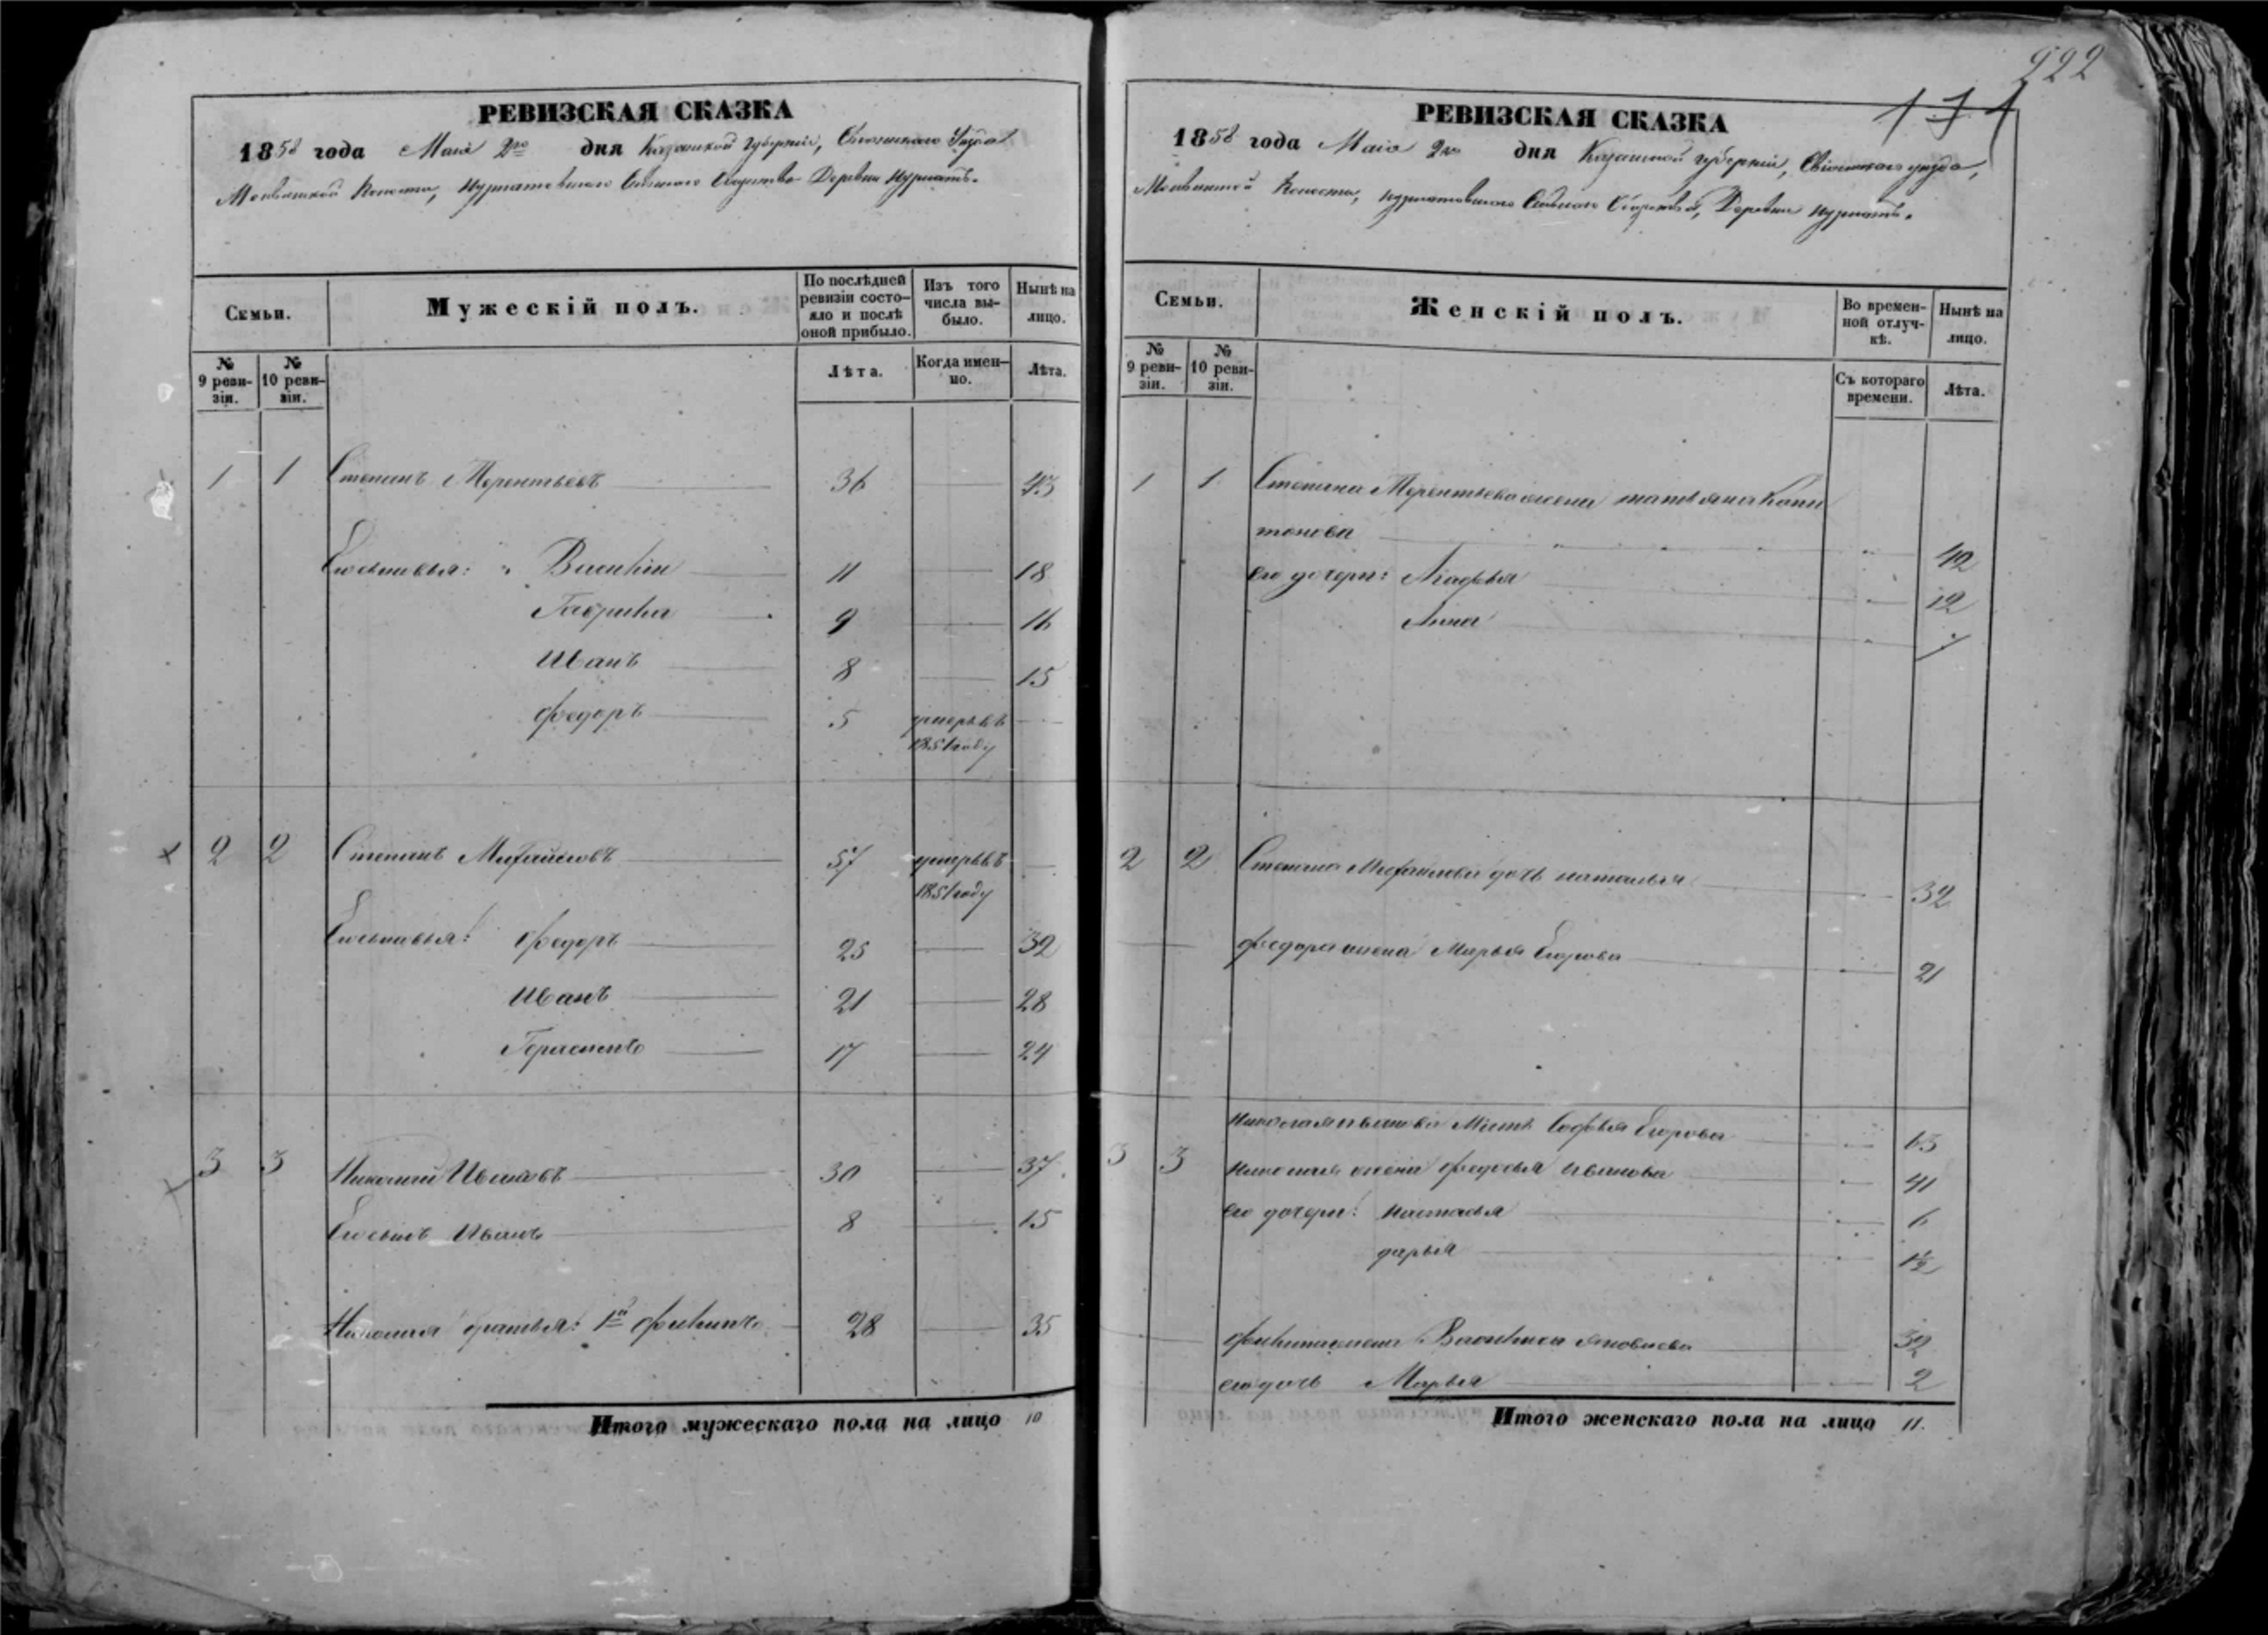 РЕВИЗСКАЯ СКАЗКА
1858 года Маія 2го дня Казанской губерніи, Свіяжскаго Уѣзда
Волости, Нурлатовскаго Сельскаго Общества Деревни Нурлатъ.
Семьи.
Мужескій полъ.
По послѣдней ревизіи состо-
яло и послѣ оной прибыло.
Изъ того числа вы-
было.
Нынѣ на лицо.
№ 9 реви-
зіи.
№ 10 реви-
зіи.
Лѣта.
Когда имен-
но.
Лѣта.
1 1 Степанъ Терентьевъ 36 43
Его сыновья: Василій 11 18
Гаврила 9 16
Иванъ 8 15
Федоръ 5 умеръ въ
1851 году
2 2 Степанъ Михайловъ 57 умеръ въ
1851 году
Его сыновья: Федоръ 25 32
Иванъ 21 28
Герасимъ 17 24
3 3 Николай Ивановъ 30 37
Его сынъ Иванъ 8 15
Николая братья: 1й Филипъ 28 35
Итого мужескаго пола на лицо 10
222
171
РЕВИЗСКАЯ СКАЗКА
1858 года Маія 2го дня Казанской губерніи, Свіяжскаго уѣзда,
Волости, Нурлатовскаго Сельскаго Общества, Деревни Нурлатъ.
Семьи.
Женскій полъ.
Во времен-
ной отлуч-
кѣ.
Нынѣ на лицо.
№ 9 реви-
зіи.
№ 10 реви-
зіи.
Съ котораго времени.
Лѣта.
1 1 Степана Терентьева жена татьяна Капи
тонова 42
его дочери: Агафья 12
Анна 1
2 2 Степана Михайлова дочь наталья 32
Федора жена Марья Егорова 21
Николая иванова Мать Софья Егорова 63
3 3 Николая жена Федосья иванова 41
его дочери: настасья 6
дарья 1½
Филипа жена Василиса яковлева 32
его дочь Марья 2
Итого женскаго пола на лицо 11.